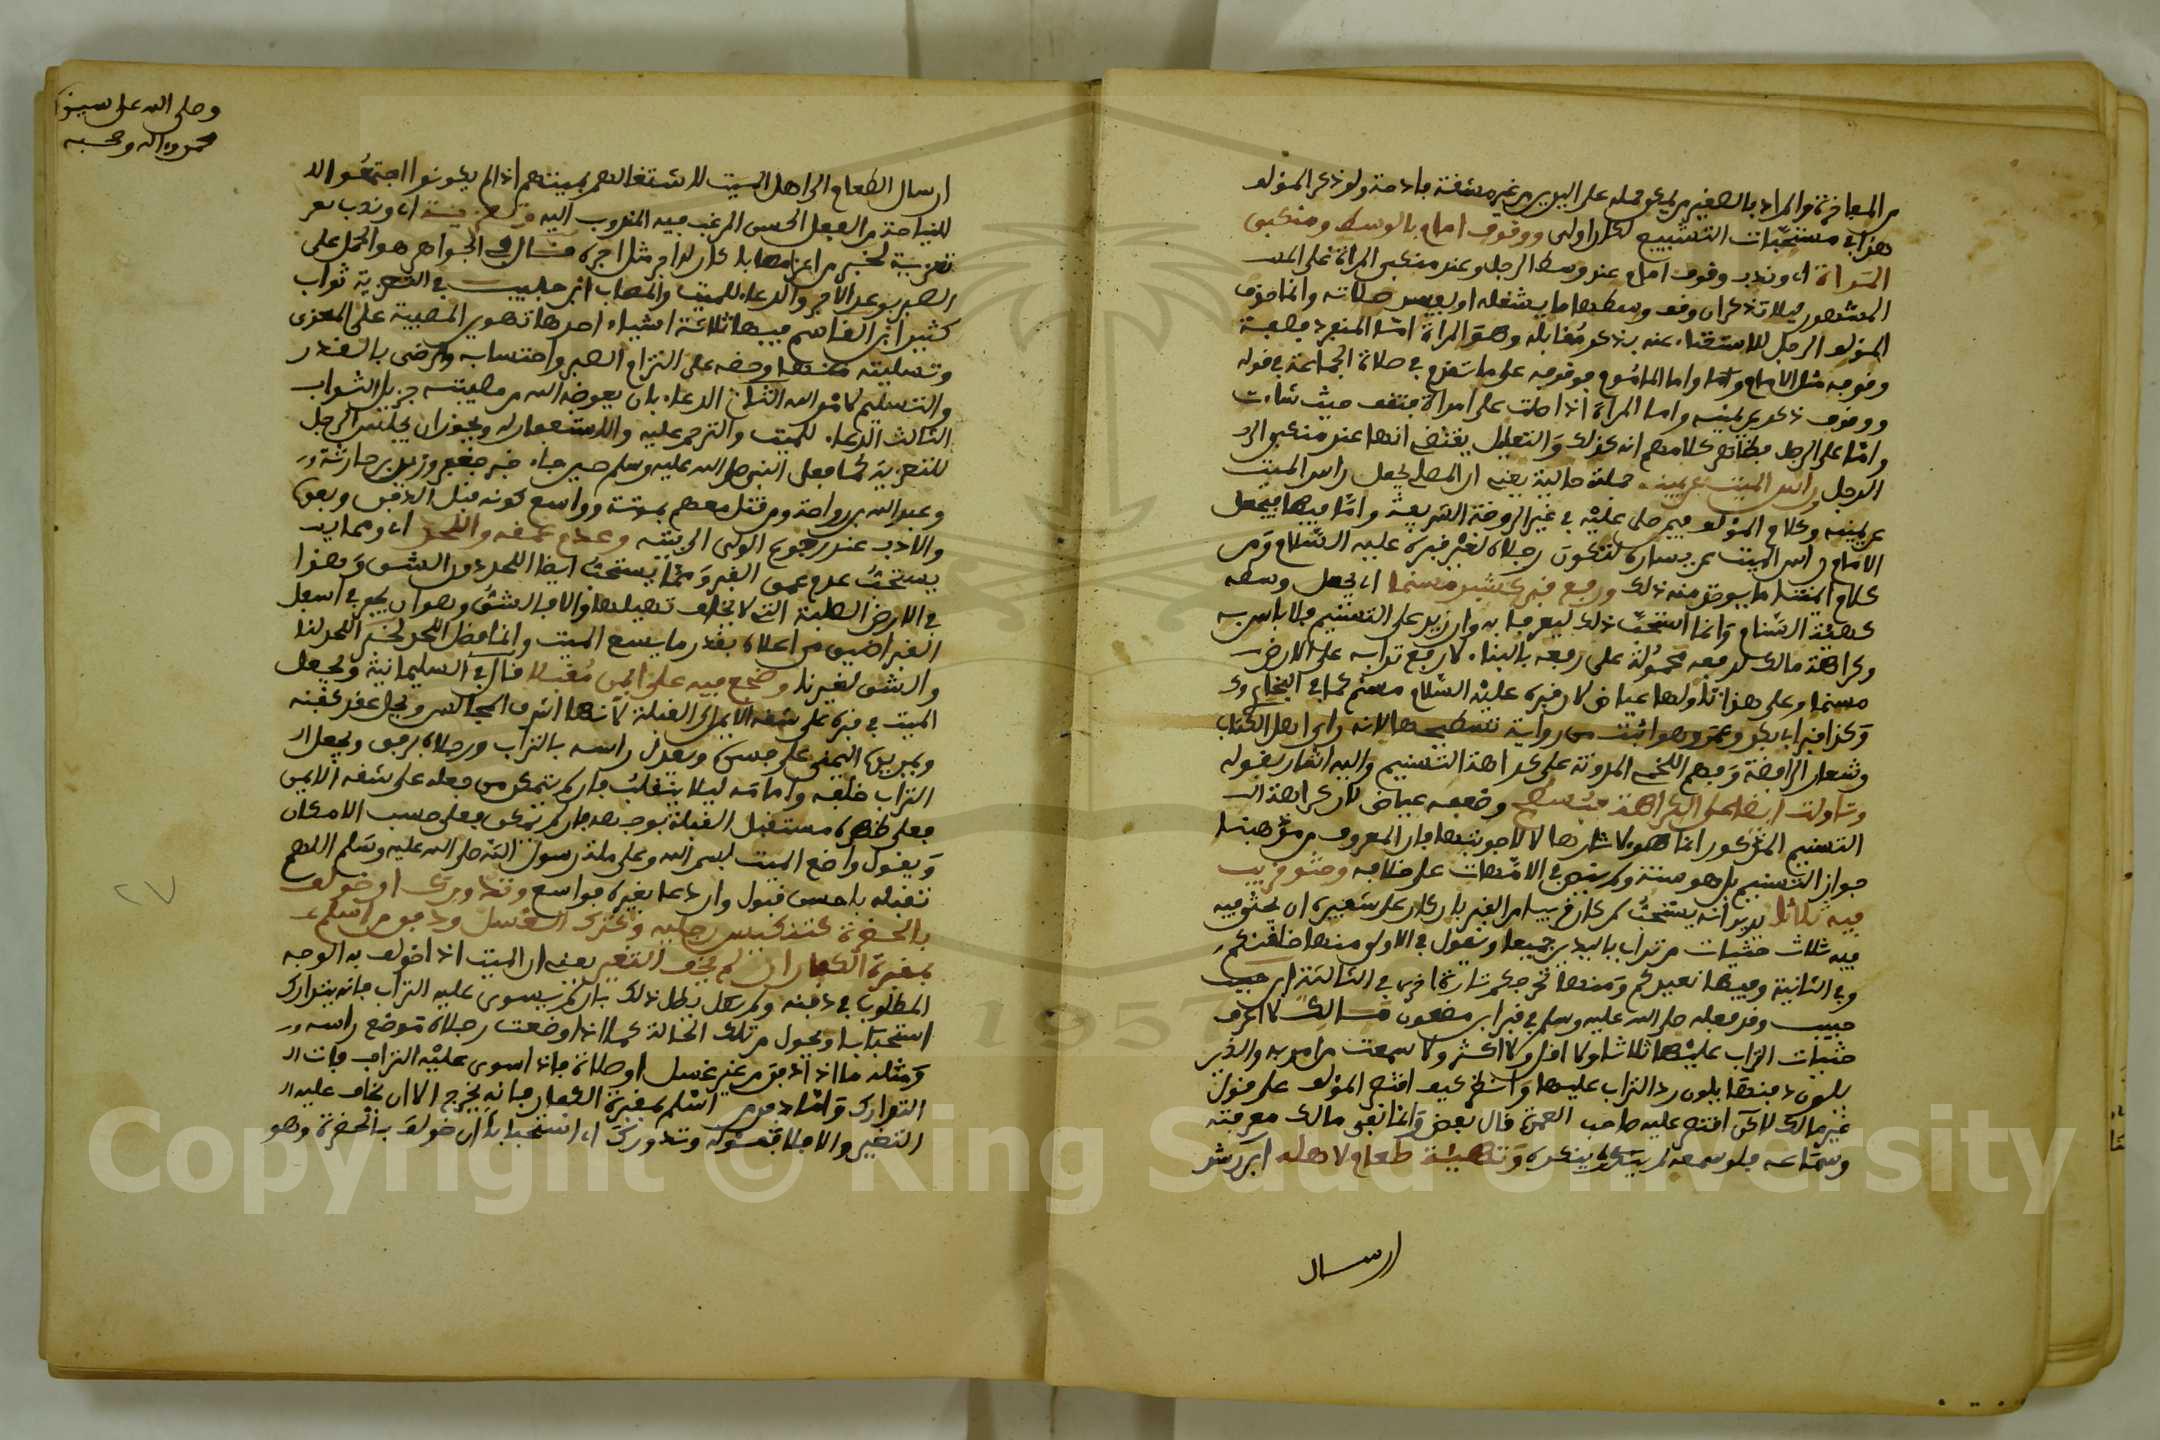 من المفاخرة والمراد بالصغير من يمكن حمله على اليدين من غير مشقة فادحة ولو ذكر المؤلف
هذا في مستحبات التشييع لكان اولى ووقوف امام بالوسط ومنكبي
المراة اي وندب وقوف امام عند وسط الرجل وعند منكبي المراة على
المشهور ليلا تذكر ان وقف وسطها ما يشغله او يفسد صلاته وانما حذف
المؤلف الرجل للاستغناء عنه بذكر مقابله وهو المراة اما المنفرد
وقوفه مثل الامام واما الماموم فوقوفه على ما سبق في صلاة الجماعة في قوله
ووقوف ذكر عن يمينه واما المراة اذا صلت على امراة فتقف حيث شاءت
واما على الرجل فظاهر كلامهم انه كذلك والتعليل يقتضي انها عند منكبي
الرجل راس الميت عن يمينه جملة حالية يعني ان المصلي يجعل راس الميت
عن يمينه وكلام المؤلف فيمن صلى عليه في غير الروضة الشريفة واما فيها فيجعل
الامام راس الميت عن يساره لتكون رجلاه لغير قبره عليه السلام ومن
كلام ما يوخذ منه ذلك ورفع قبر كشبر مسنما اي يجعل وسطه
كهيئة السنام وانما استحب ذلك ليعرف به وان زيد على التسنيم فلا باس به
وكراهة مالك لرفعه محمولة على رفعه بالبناء لا رفع ترابه على الارض
مسنما وعلى هذا تاولها عياض لان قبره عليه السلام مسنم كما في البخاري
وكذا قبر ابي بكر وعمر وهو اثبت من رواية تسطيحها لانه زي اهل الكتاب
وشعار الرافضة وفهم اللخمي المدونة على كراهة التسنيم واليه اشار بقوله
وتاولت ايضا على الكراهة فيسطح وضعفه عياض لان كراهة
التسنيم المذكور انما هو لا لاجوبتها فان المعروف من مذهبنا
جواز التسنيم بل هو سنة ولم ينص في الامهات على خلافه وحثو قريب
فيه ثلاثا يريد انه يستحب لمن كان قريبا من القبر بان كان على شفيره ان يحثو فيه
فيه ثلاث حثيات من تراب باليدين جميعا ويقول في الاولى منها خلقناكم
وفي الثانية وفيها نعيدكم ومنها نخرجكم تارة اخرى في الثالثة ابن حبيب
حبيب وقد فعله صلى الله عليه وسلم في قبر ابن مظعون مالك لا اعرف
حثيات التراب عليها ثلاثا ولا اقل ولا اكثر ولا سمعت من امر به والذين
يلون دفنها يلون رد التراب عليها وانظر كيف اقتصر المؤلف على قول
غير مالك لاكن اقتصر عليه صاحب العمدة قال بعض وانما نفى مالك معرفته
وسماعه فلو سمعه لم ينكره وتهيئة طعام لاهله ابن رشد
ارسال
وصلى الله على سيدنا
محمد واله وصحبه
ارسال الطعام الى اهل الميت لاشتغالهم بميتهم اذا لم يكونوا اجتمعوا
للنياحة من الفعل الحسن المرغب فيه المندوب اليه وتعزية اي وندب
تعزية لخبر من عزى مصابا كان له اجر مثل اجره قال في الجواهر هو الحمل على
الصبر بوعد الاجر والدعاء للميت والمصاب ابن حبيب في التعزية ثواب
كثير ابن القاسم فيها ثلاثة اشياء احدها تهوين المصيبة على المعزى
وتسليته منها وحضه على التزام الصبر واحتسابه والرضى بالقدر
والتسليم لامر الله الثاني الدعاء بان يعوضه الله من مصيبته جزيل الثواب
الثالث الدعاء للميت والترحم عليه والاستغفار له ويجوز ان يجلس الرجل
للتعزية كما فعل النبي صلى الله عليه وسلم حين جاء خبر جعفر وزيد بن حارثة
وعبد الله بن رواحة ومن قتل معهم بموتة وواسع كونه قبل الدفن وبعده
والادب عند رجوع الولي الى بيته وعدم عمقه واللحد اي ومما
يستحب عدم عمق القبر ومما يستحب ايضا اللحد دون الشق وهذا
في الارض الصلبة التي لا يخاف تهيلها والا فالشق وهو ان يحفر في اسفل
القبر اضيق من اعلاه بقدر ما يسع الميت وانما فضل اللحد لخبر اللحد لنا
والشق لغيرنا وضجع فيه على ايمن مقبلا قال في السليمانية ويجعل
الميت في قبره على شقه الايمن الى القبلة لانها اشرف المجالس ويحل عقد كفنه
ويمد يده اليمنى على جسده ويعدل راسه بالتراب ورجلاه برفق ويجعل
التراب خلفه وامامه ليلا ينقلب فان لم يتمكن من جعله على شقه الايمن
فعلى ظهره مستقبل القبلة بوجهه فان لم يمكن فعلى حسب الامكان
ويقول واضع الميت بسم الله وعلى ملة رسول الله صلى الله عليه وسلم اللهم
تقبله باحسن قبول وان دعا بغيره فواسع وتدورك ان خولف
بالحضرة كتنكيس رجليه وكترك الغسل ودفن من اسلم
بمقبرة الكفار ان لم يخف التغير يعني ان الميت اذا خولف به الوجه
المطلوب في دفنه ولم يطل ذلك بان لم يسوى عليه التراب فانه يتدارك
استحبابا ويحول من تلك الحالة كما اذا وضعت رجلاه موضع راسه
ومثله ما اذا دفن من غير غسل او صلاة فاذا سوي عليه التراب فات
التدارك واما دفن من اسلم بمقبرة الكفار فانه يخرج الا ان يخاف عليه
التغير والا فلا فقوله وتدورك اي استحبابا ان خولف بالحضرة وهو
٢٧
Copyright © King Saud University
1957